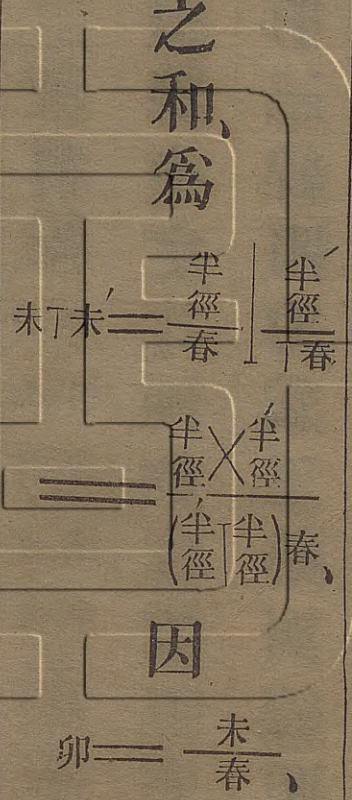 之和、爲
未丅未′＝半徑/春⊥半徑′/丅春
＝半徑×半徑′/(半徑′丅半徑)春、
因
卯＝未/春、